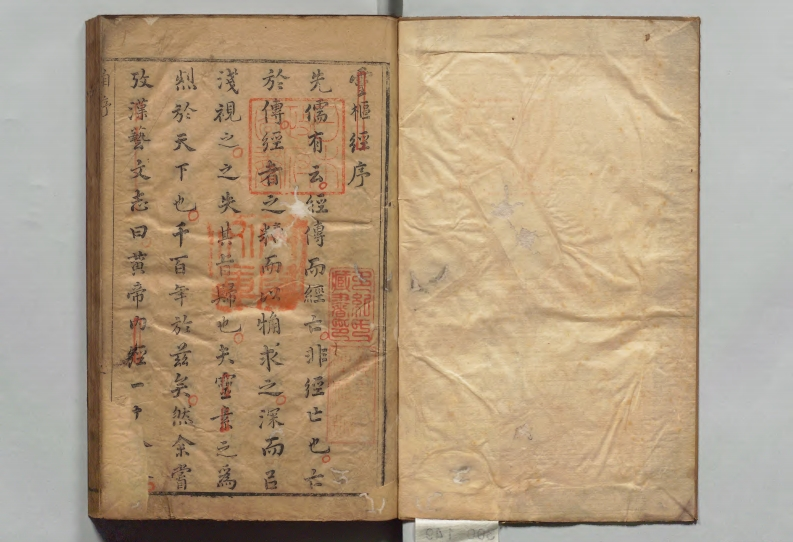 靈樞經序
先儒有云經傳而經亡非經亡也亡
於傳經者之精而以觕求之深而㠯
淺視之之失其旨歸也夫靈素之爲
烈於天下也千百年於茲矣然余嘗
攷漢藝文志曰黃帝內經一十
序